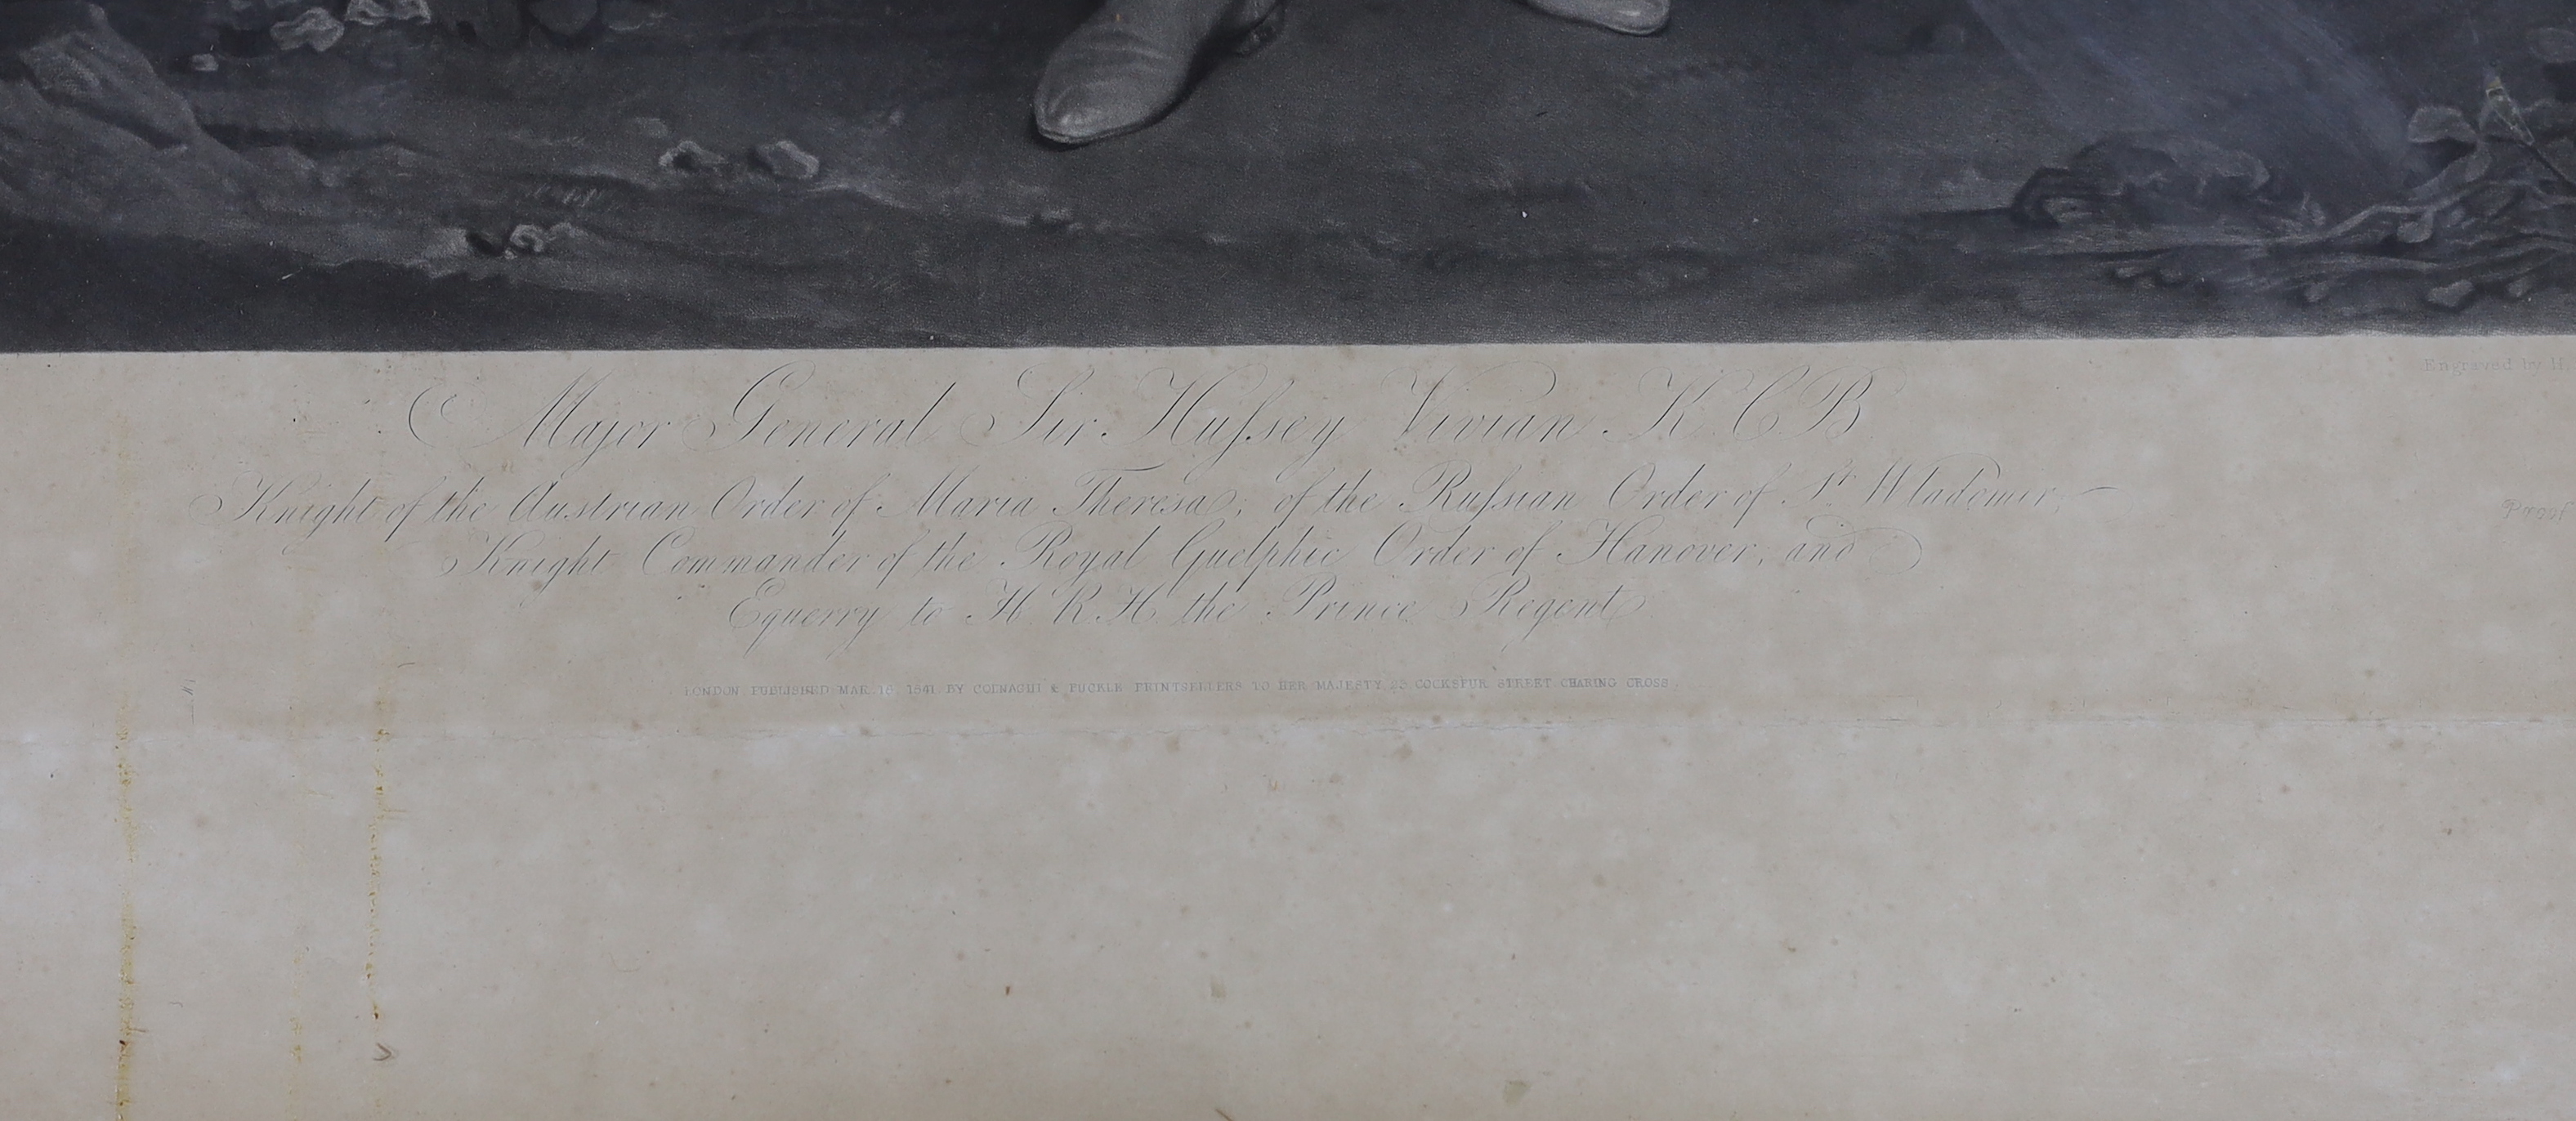 Engraved by H.
Major General Sir Huſsey Vivian K.C.B
Knight of the Austrian Order of Maria Theresa, of the Ruſsian Order of St. Wlademir,
Proof
Knight Commander of the Royal Guelphic Order of Hanover, and
Equerry to H.R.H. the Prince Regent
LONDON, PUBLISHED MAR. 18, 1841, BY COLNAGHI & PUCKLE PRINTSELLERS TO HER MAJESTY, 23 COCKSPUR STREET CHARING CROSS.